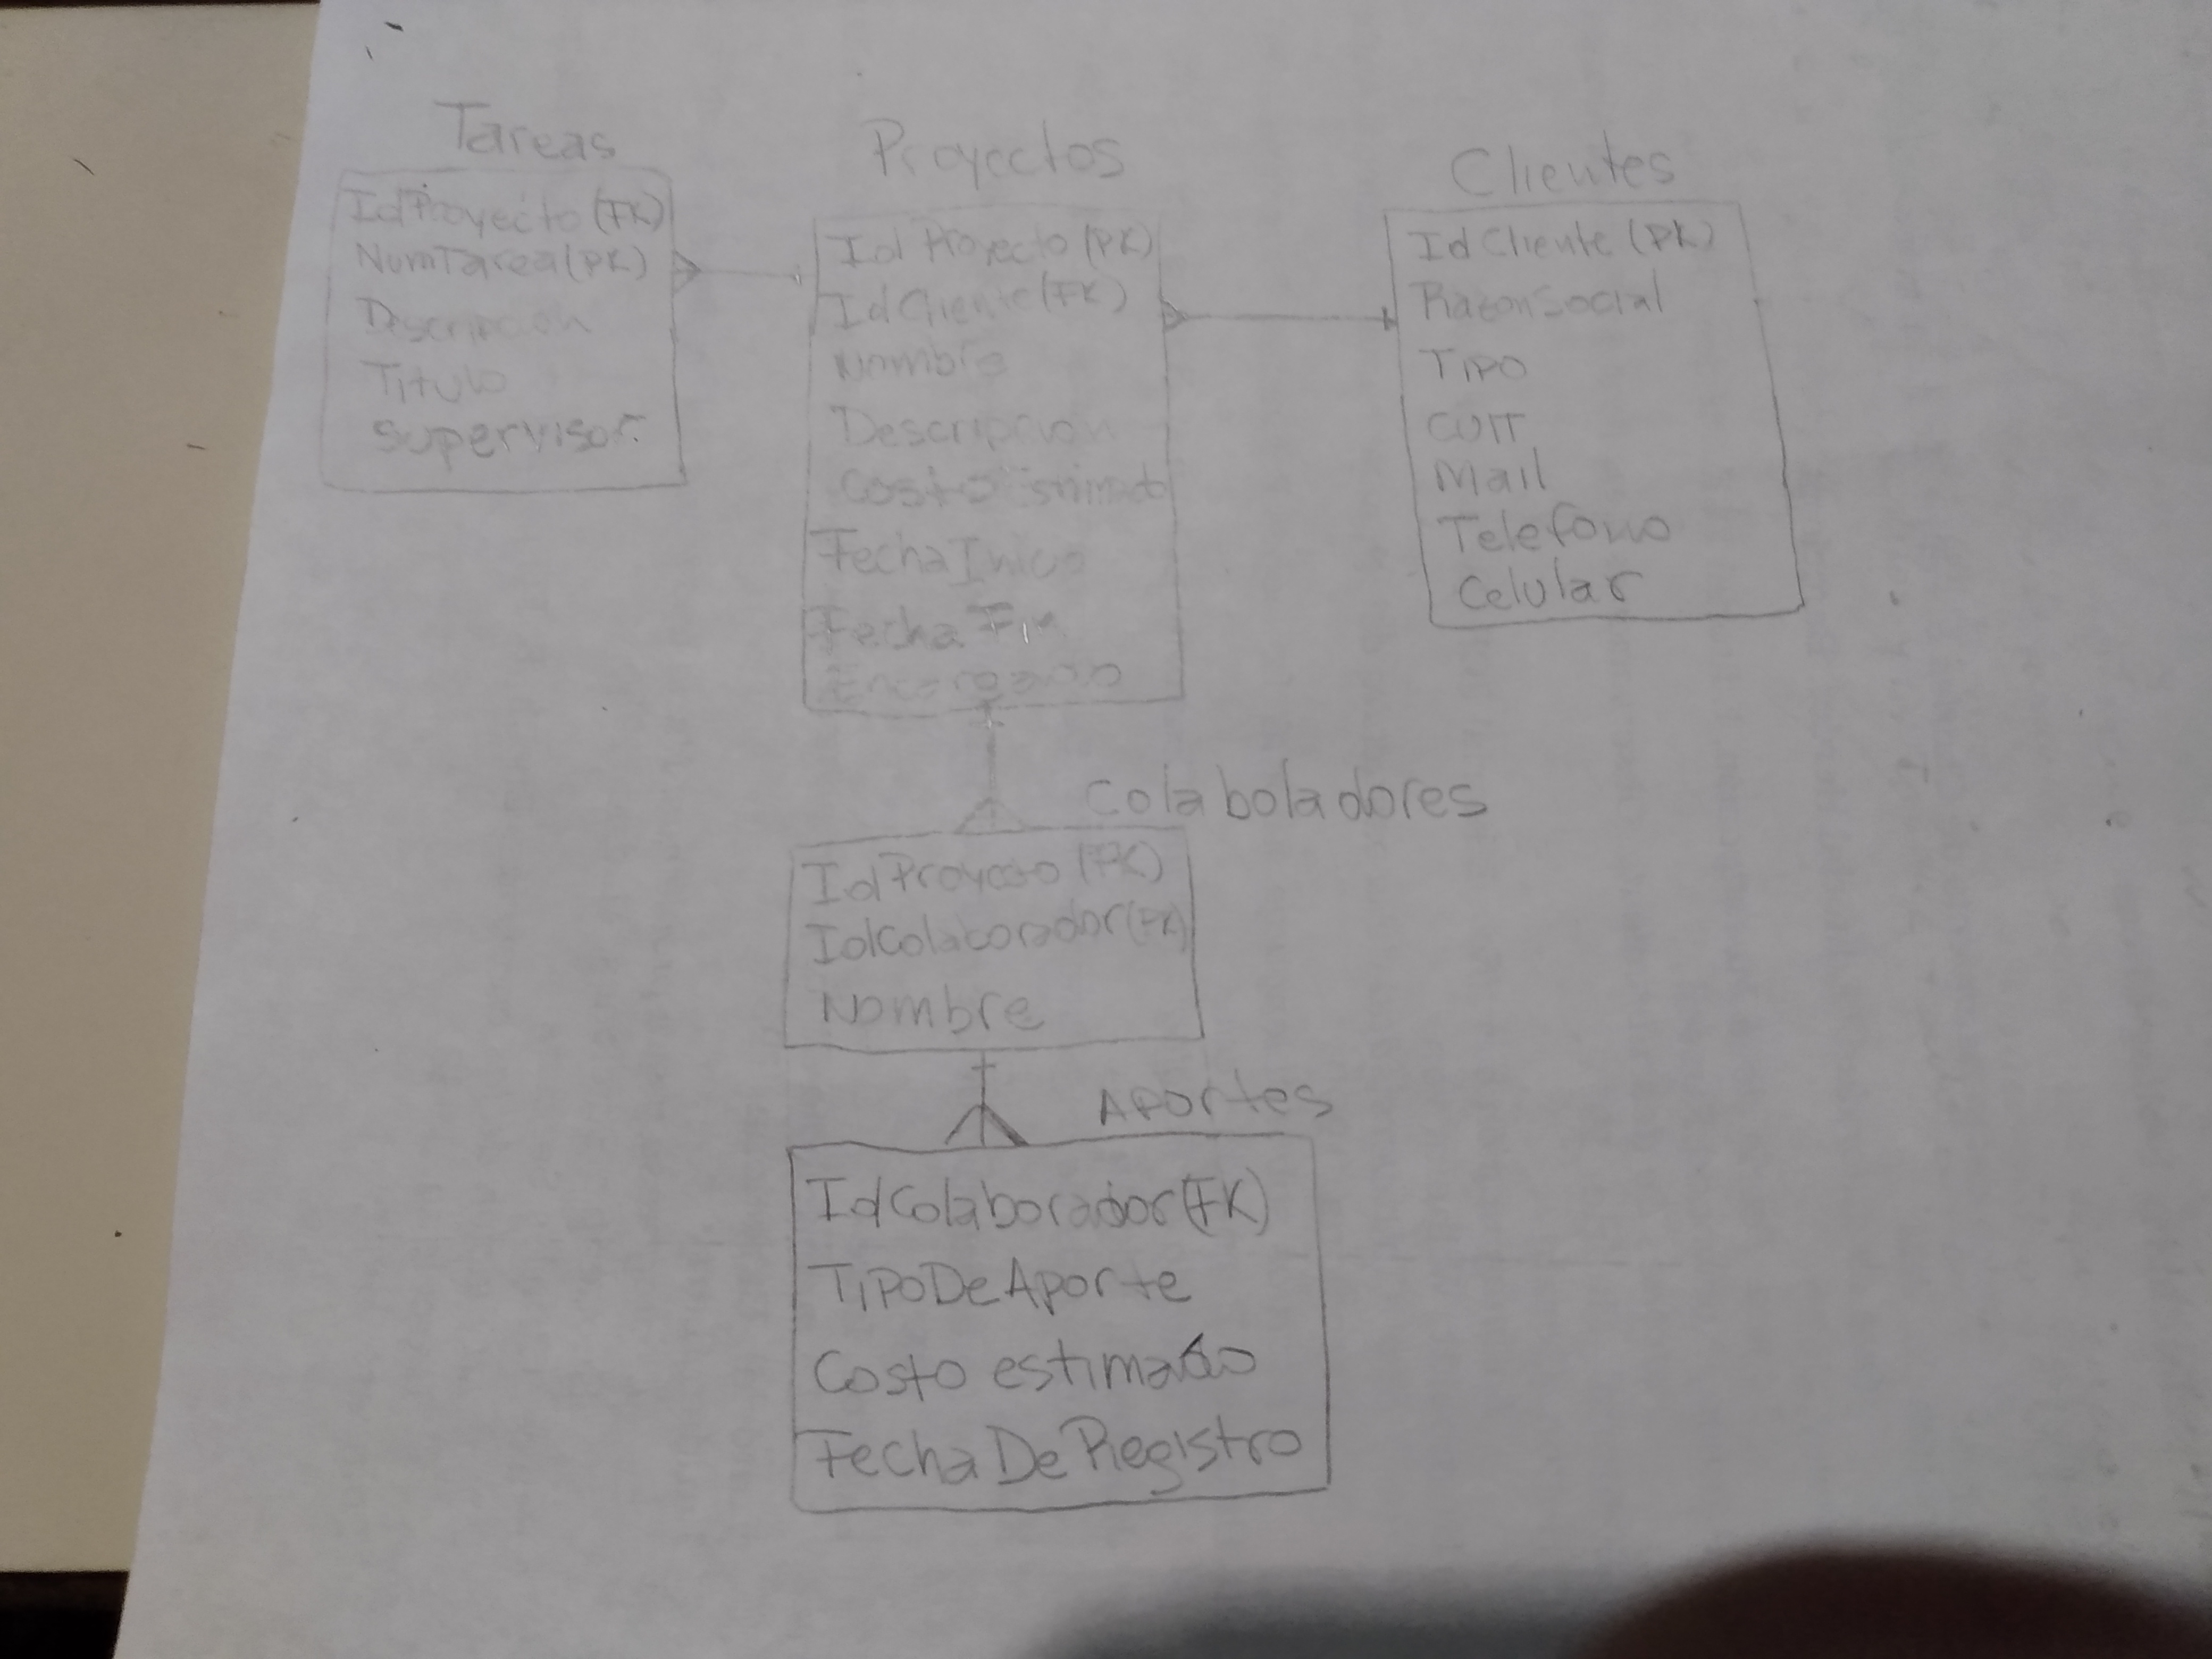 Tareas
IdProyecto (FK)
NumTarea (PK)
Descripcion
Titulo
Supervisor
Proyectos
IdProyecto (PK)
IdCliente (FK)
Nombre
Descripcion
Costo
FechaInicio
Fecha Fin
Encargado
Clientes
IdCliente (PK)
RazonSocial
Tipo
CUIT
Mail
Telefono
Celular
Colaboladores
IdProyecto (FK)
IdColaborador (PK)
Nombre
Aportes
IdColaborador (FK)
TipoDeAporte
Costo estimado
FechaDeRegistro